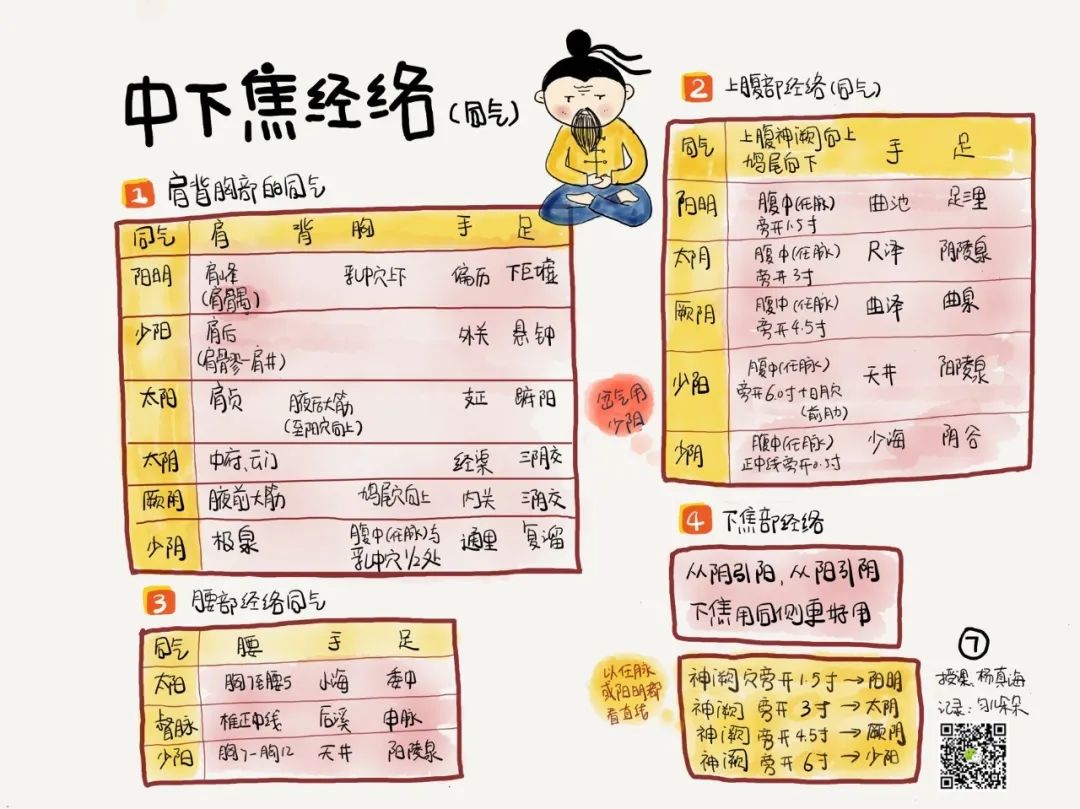 中下焦经络(同气)
1 肩背胸部的同气
同气 肩 背 胸 手 足
阳明 肩峰 乳中穴上下 偏历 下巨墟
(肩髃)
少阳 肩后 外关 悬钟
(肩髎-肩井)
太阳 肩贞 腋后大筋 支正 跗阳
(至阴穴向上)
太阴 中府、云门 经渠 三阴交
厥阴 腋前大筋 鸠尾穴向上 内关 三阴交
少阴 极泉 腹中(任脉)与 通里 复溜
乳中穴1/2处
2 上腹部经络(同气)
同气 上腹神阙向上 手 足
鸠尾向下
阳明 腹中(任脉) 曲池 足三里
旁开1.5寸
太阴 腹中(任脉) 尺泽 阴陵泉
旁开3寸
厥阴 腹中(任脉) 曲泽 曲泉
旁开4.5寸
少阳 腹中(任脉) 天井 阳陵泉
旁开6.0寸+日月穴
(前肋)
少阴 腹中(任脉) 少海 阴谷
正中线旁开0.5寸
岔气用
少阴
3 腰部经络同气
同气 腰 手 足
太阳 胸7至腰5 小海 委中
督脉 椎正中线 后溪 申脉
少阳 胸7-胸12 天井 阳陵泉
4 下焦部经络
从阴引阳,从阳引阴
下焦用同侧更好用
以任脉
或阳明都
看直线
神阙穴旁开1.5寸→阳明
神阙 旁开3寸→太阴
神阙 旁开4.5寸→厥阴
神阙 旁开6寸→少阳
7
授课:杨真海
记录: